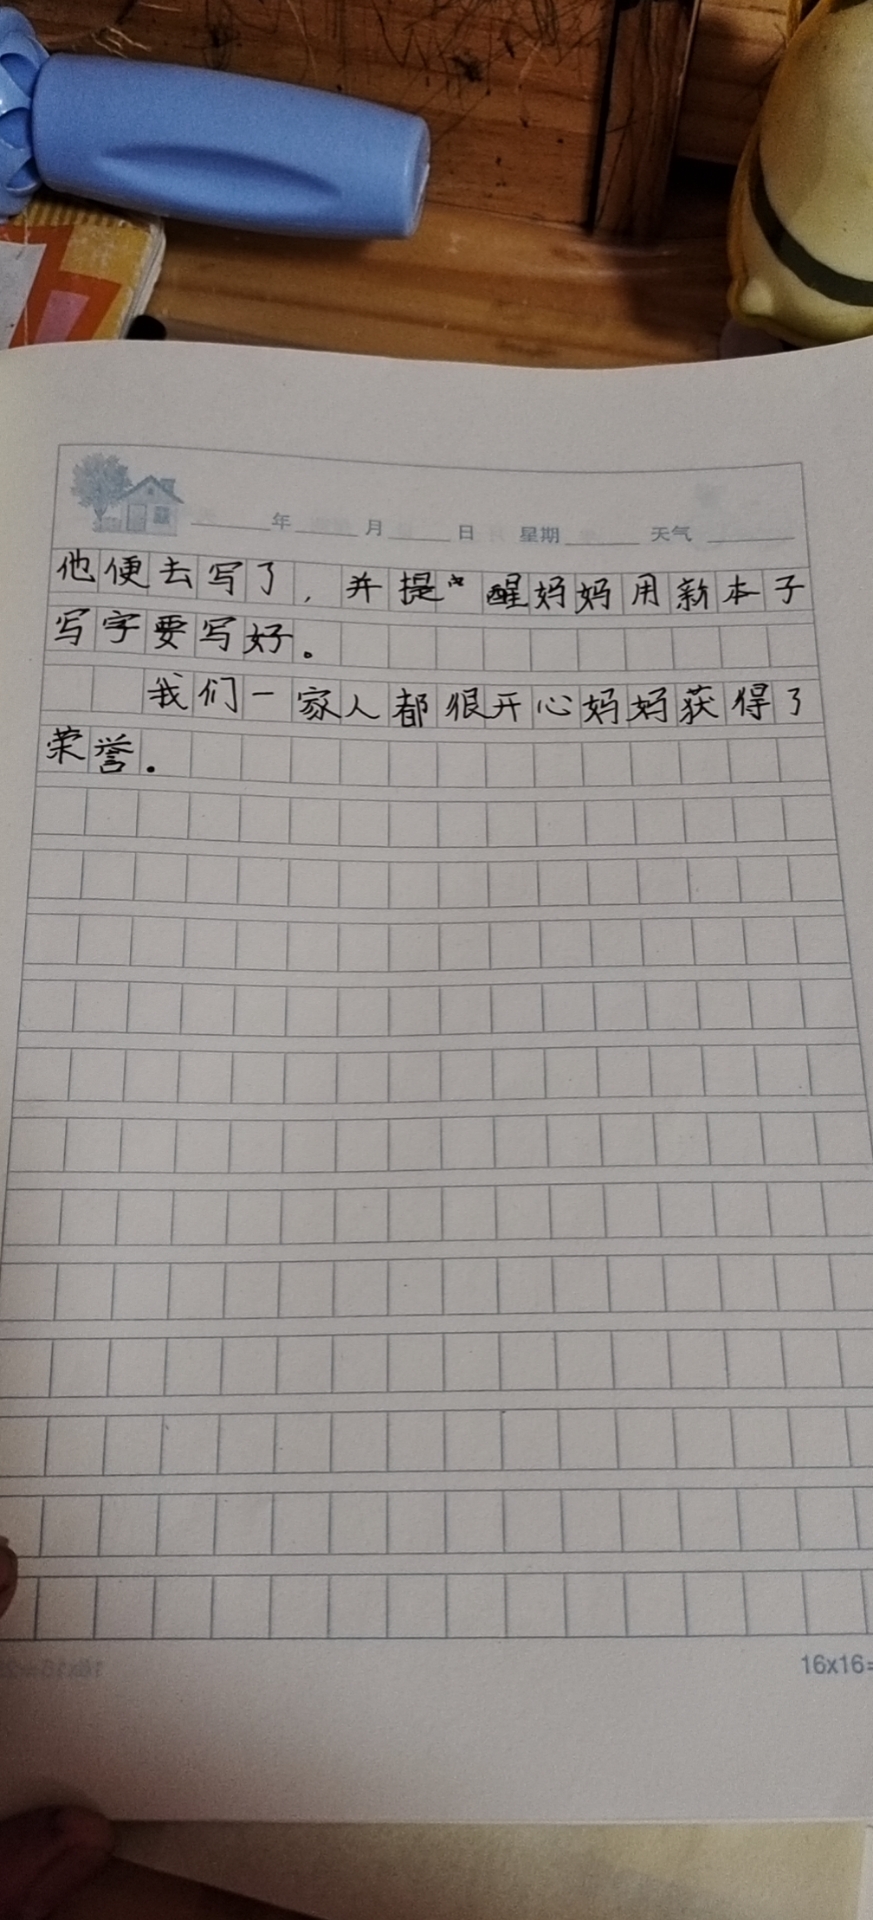 年 月 日 星期 天气
他便去写了，并提醒妈妈用新本子
写字要写好。
我们一家人都很开心妈妈获得了
荣誉。
16x16=